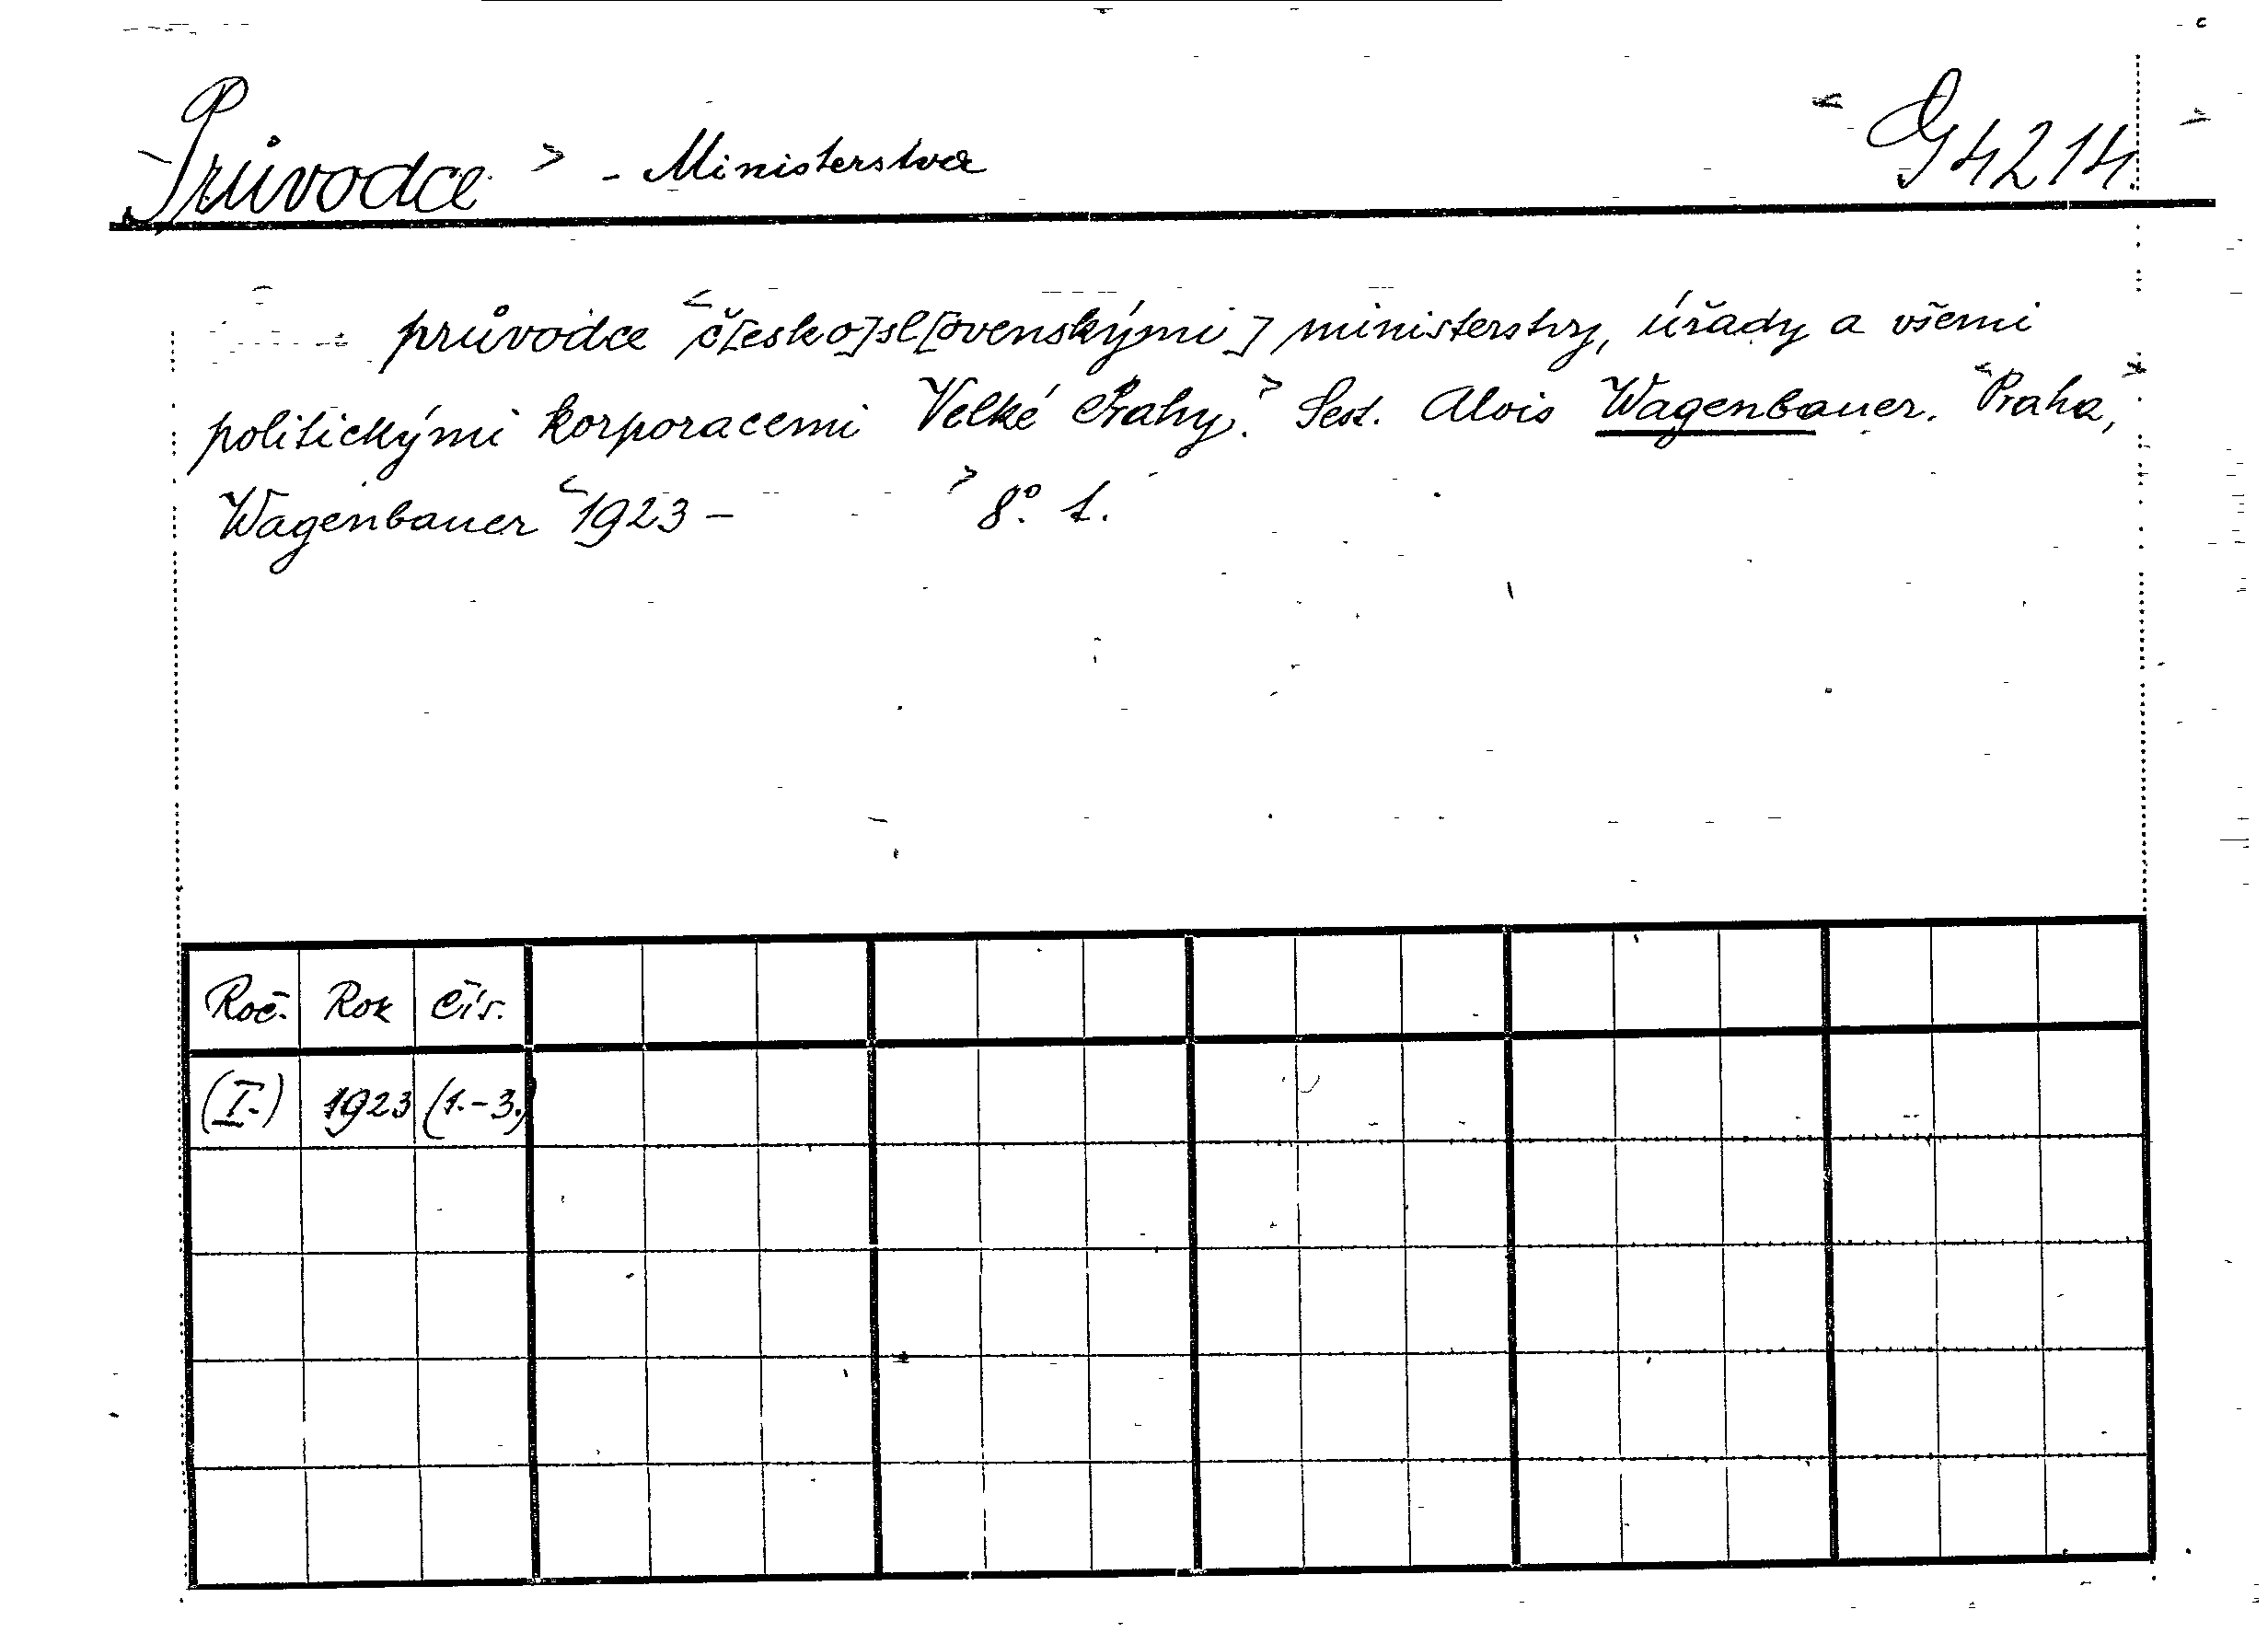 Průvodce > - Ministerstva < G 4214. >
průvodce < č[esko]sl[ovenskými] ministerstvy, úřady a všemi
politickými korporacemi Velké Prahy. > Sest. Alois Wagenbauer. < Praha, >
Wagenbauer < 1923 - > 8°. 1.
Roč. Rok Čís.
(I.) 1923 (1.-3.)